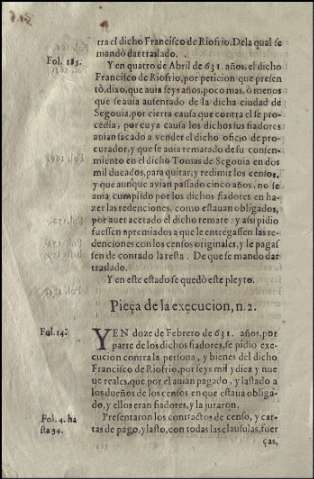 tra el dicho Francisco de Riofrio. De la qual se
mandò dar traslado.
Fol. 185.
Y en quatro de Abril de 631. años, el dicho
Francisco de Riofrio, por peticion que presen
tò, dixo, que auia seys años, poco mas, ò menos
que se auia ausentado de la dicha ciudad de
Segouia, por cierta causa que contra el se pro-
cedia, por cuya causa los dichos sus fiadores
auian sacado a vender el dicho oficio de pro-
curador, y que se auia rematado de su consen-
timiento en el dicho Tomas de Segouia en dos
mil ducados, para quitar, y redimir los censos,
y que aunque auian passado cinco años, no se
auia cumplido por los dichos fiadores en ha-
zer las redenciones, como estauan obligados,
por auer acetado el dicho remate: y assi pidio
fuessen apremiados a que le entregassen las re-
denciones con los censos originales, y le pagas
sen de contado la resta. De que se mando dar
traslado.
Y en este estado se quedò este pleyto.
Pieça de la execucion, n. 2.
Fol. 14.
Y EN doze de Febrero de 631. años, por
parte de los dichos fiadores, se pidio exe-
cucion contra la persona, y bienes del dicho
Francisco de Riofrio, por seys mil y diez y nue
ue reales, que por el auian pagado, y lastado a
los dueños de los censos en que estaua obliga-
do, y ellos eran fiadores, y la juraron.
Fol. 4. ha
sta 94.
Presentaron los contractos de censo, y car-
tas de pago, y lasto, con todas las clausulas, fuer
ças,